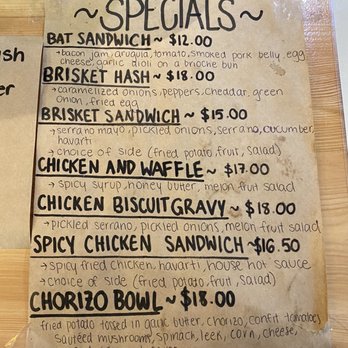 ~SPECIALS~
BAT SANDWICH ~ $12.00
→ bacon jam, arugula, tomato, smoked pork belly, egg
cheese, garlic aioli on a brioche bun
BRISKET HASH ~ $18.00
→ caramelized onions, peppers, cheddar, green
onion, fried egg
BRISKET SANDWICH ~ $15.00
→ serrano mayo, pickled onions, serrano, cucumber,
havarti
→ choice of side (fried potato, fruit, salad)
CHICKEN AND WAFFLE ~ $17.00
→ spicy syrup, honey butter, melon fruit salad
CHICKEN BISCUIT GRAVY ~ $18.00
→ pickled serrano, pickled onions, melon fruit salad
SPICY CHICKEN SANDWICH ~$16.50
→ spicy fried chicken, havarti, house hot sauce
→ choice of side (fried potato, fruit, salad)
CHORIZO BOWL ~ $18.00
fried potato tossed in garlic butter, chorizo, confit tomatoes
sautéed mushrooms, spinach, leek, corn, cheese,